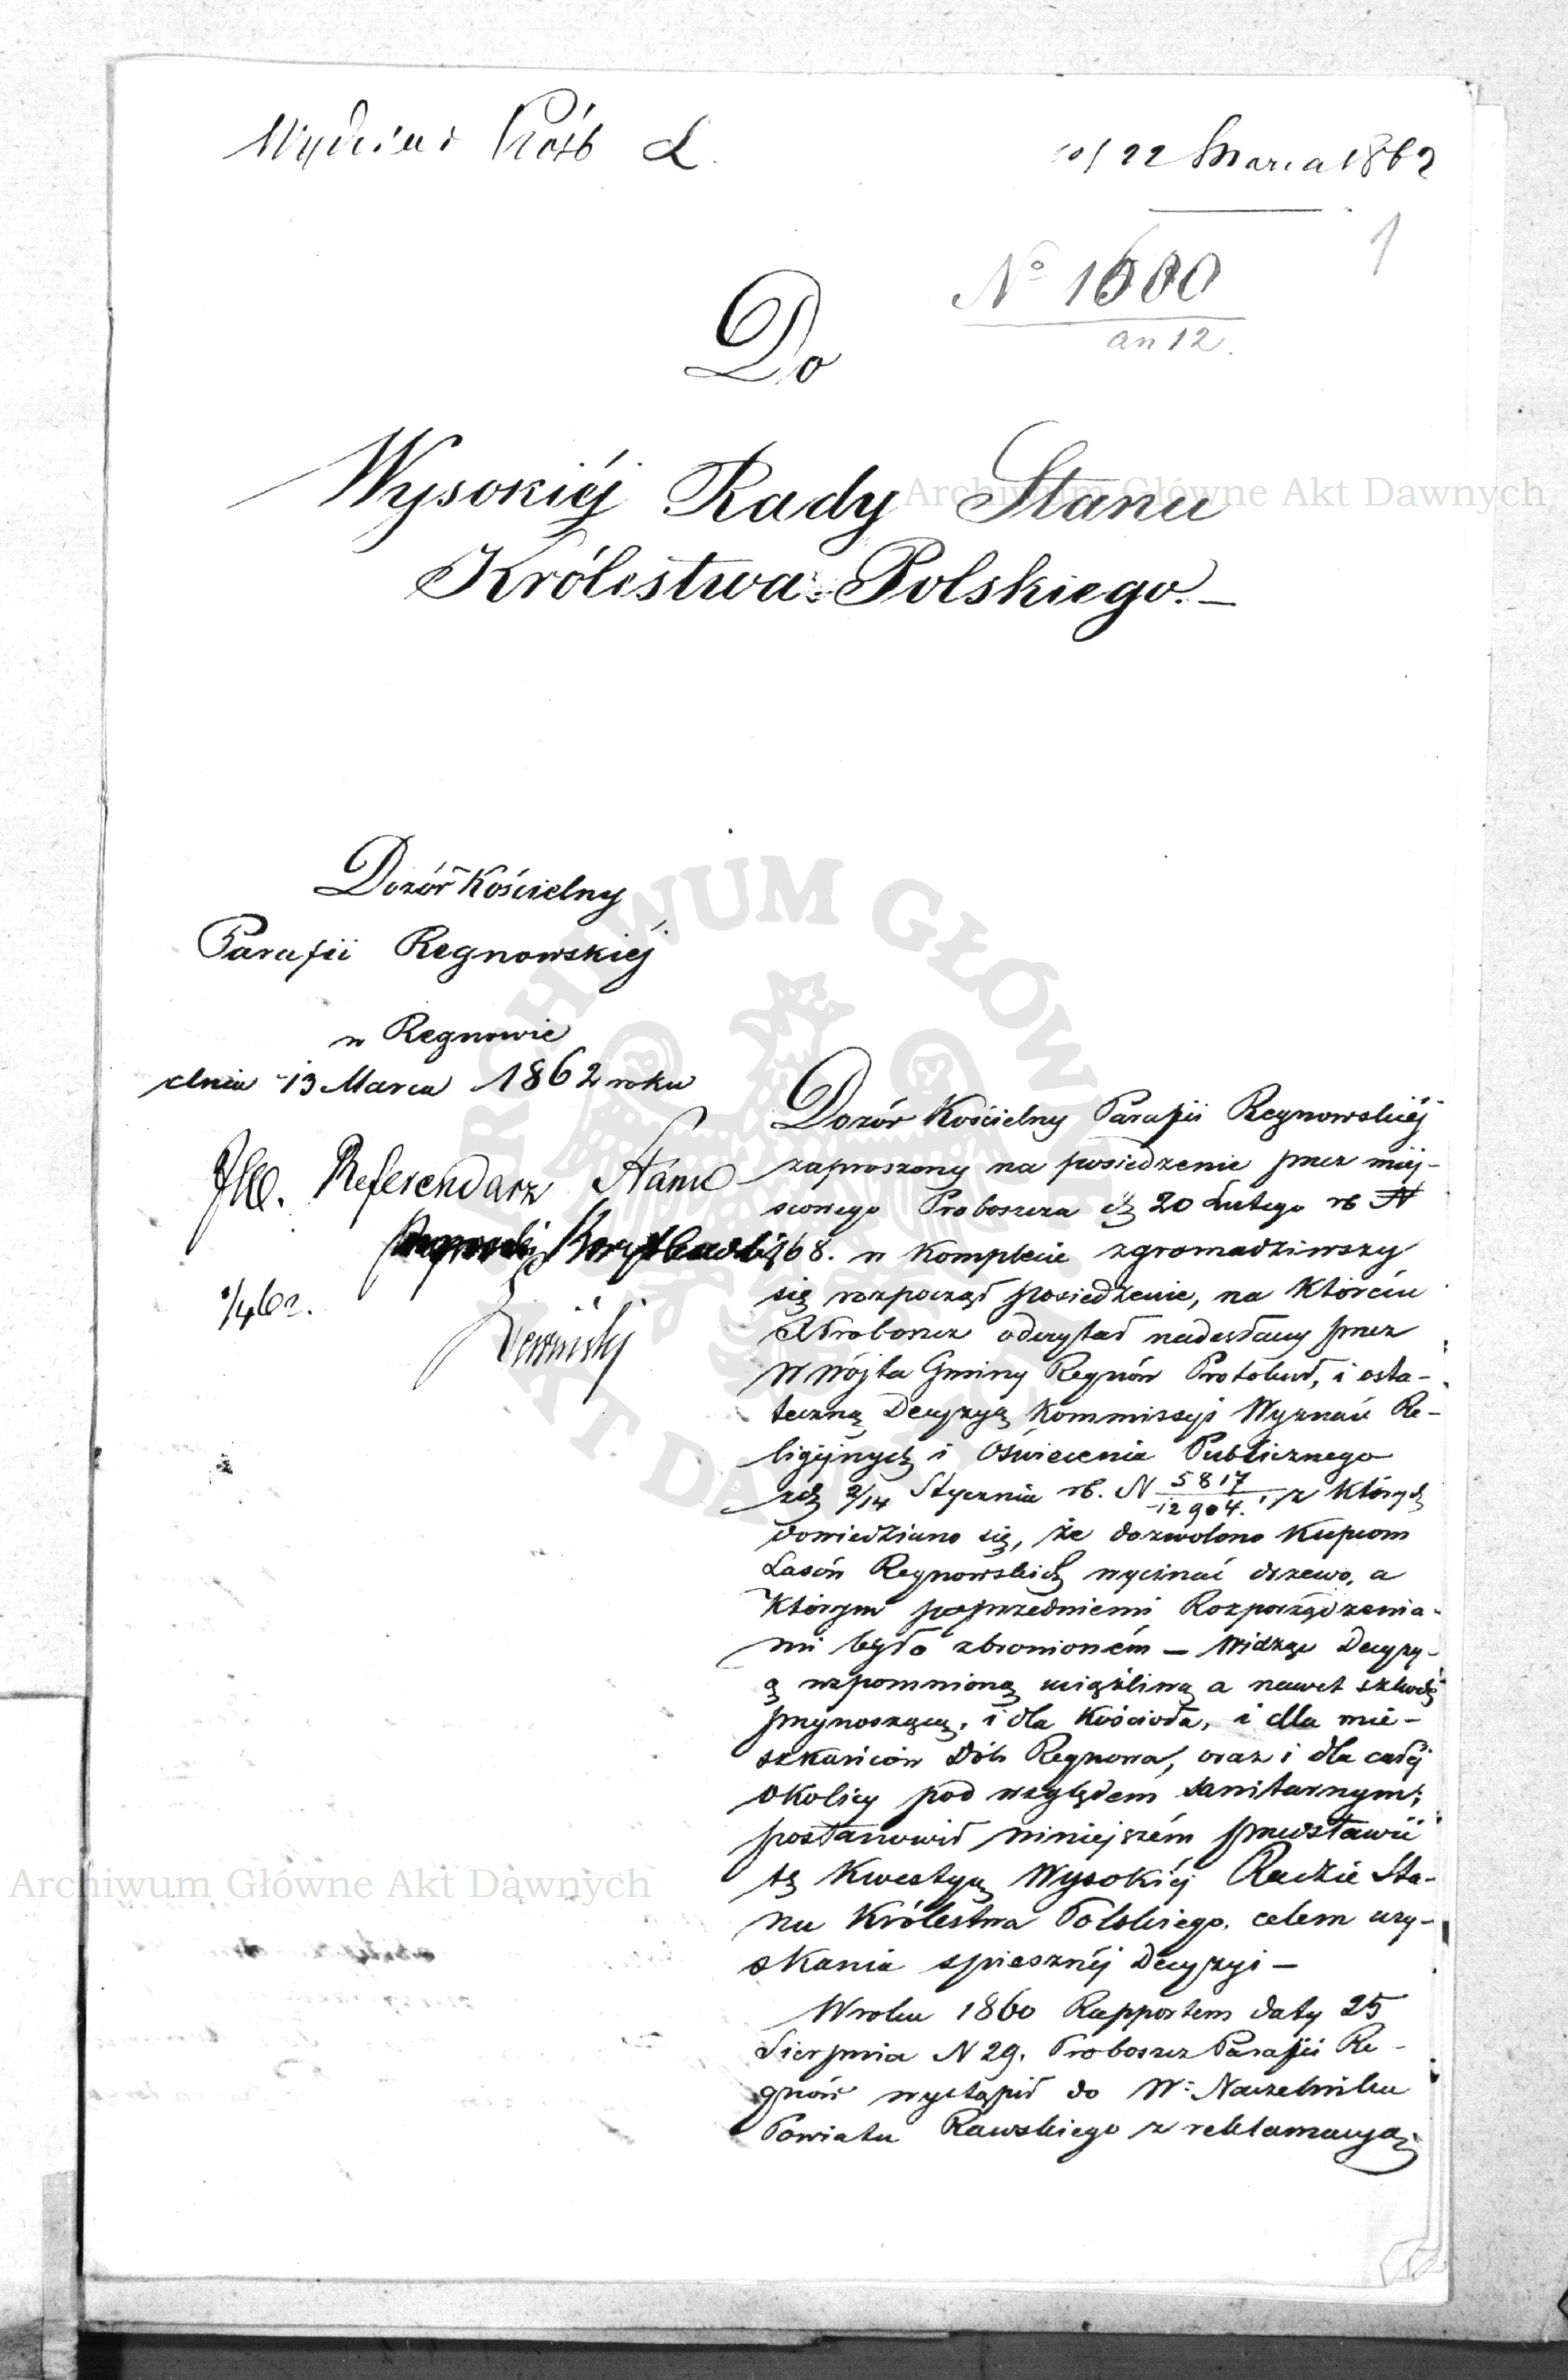 Wydział Próśb L.
10/22 Marca 1862
1
N° 1600
an 12.
Do
Wysokiéj Rady Stanu
Królestwa Polskiego. —
Dozór Kościelny
Parafii Regnowskiéj
w Regnowie
dnia 13 Marca 1862 roku
JW. Referendarz Stanu
1/4 62.
Dozór Kościelny Parafii Regnowskiéj
zaproszony na posiedzenie przez miej-
scowego Proboszcza d. 20 Lutego rb N
168. w komplecie zgromadziwszy
się rozpoczął posiedzenie, na którém
X Proboszcz odczytał nadesłany przez
W Wójta Gminy Regnów Protokuł, i osta-
teczną Decyzyą Kommissyi Wyznań Re-
ligijnych i Oświecenia Publicznego
zd. 2/14 Stycznia rb. N 5817/12904. z których
dowiedziano się, że dozwolono Kupcom
Lasów Regnowskich wycinać drzewo, a
którym poprzedniemi Rozporządzenia-
mi było zbronioném — Widząc Decyzy-
ą wspomnioną uciążliwą a nawet szkodę
przynoszącą, i dla Kościoła, i dla mie-
szkańców Dóbr Regnowa, oraz i dla całéj
okolicy pod względem sanitarnym;
postanowił niniejszém przedstawić
tę kwestyą Wysokiéj Radzie Sta-
nu Królestwa Polskiego, celem uzy-
skania spiesznéj Decyzyi —
W roku 1860 Rapportem daty 25
Sierpnia N 29. Proboszcz Parafii Re-
gnów wystąpił do W: Naczelnika
Powiatu Rawskiego z reklamacyą,
Archiwum Główne Akt Dawnych
ARCHIWUM GŁÓWNE AKT DAWNYCH
Archiwum Główne Akt Dawnych